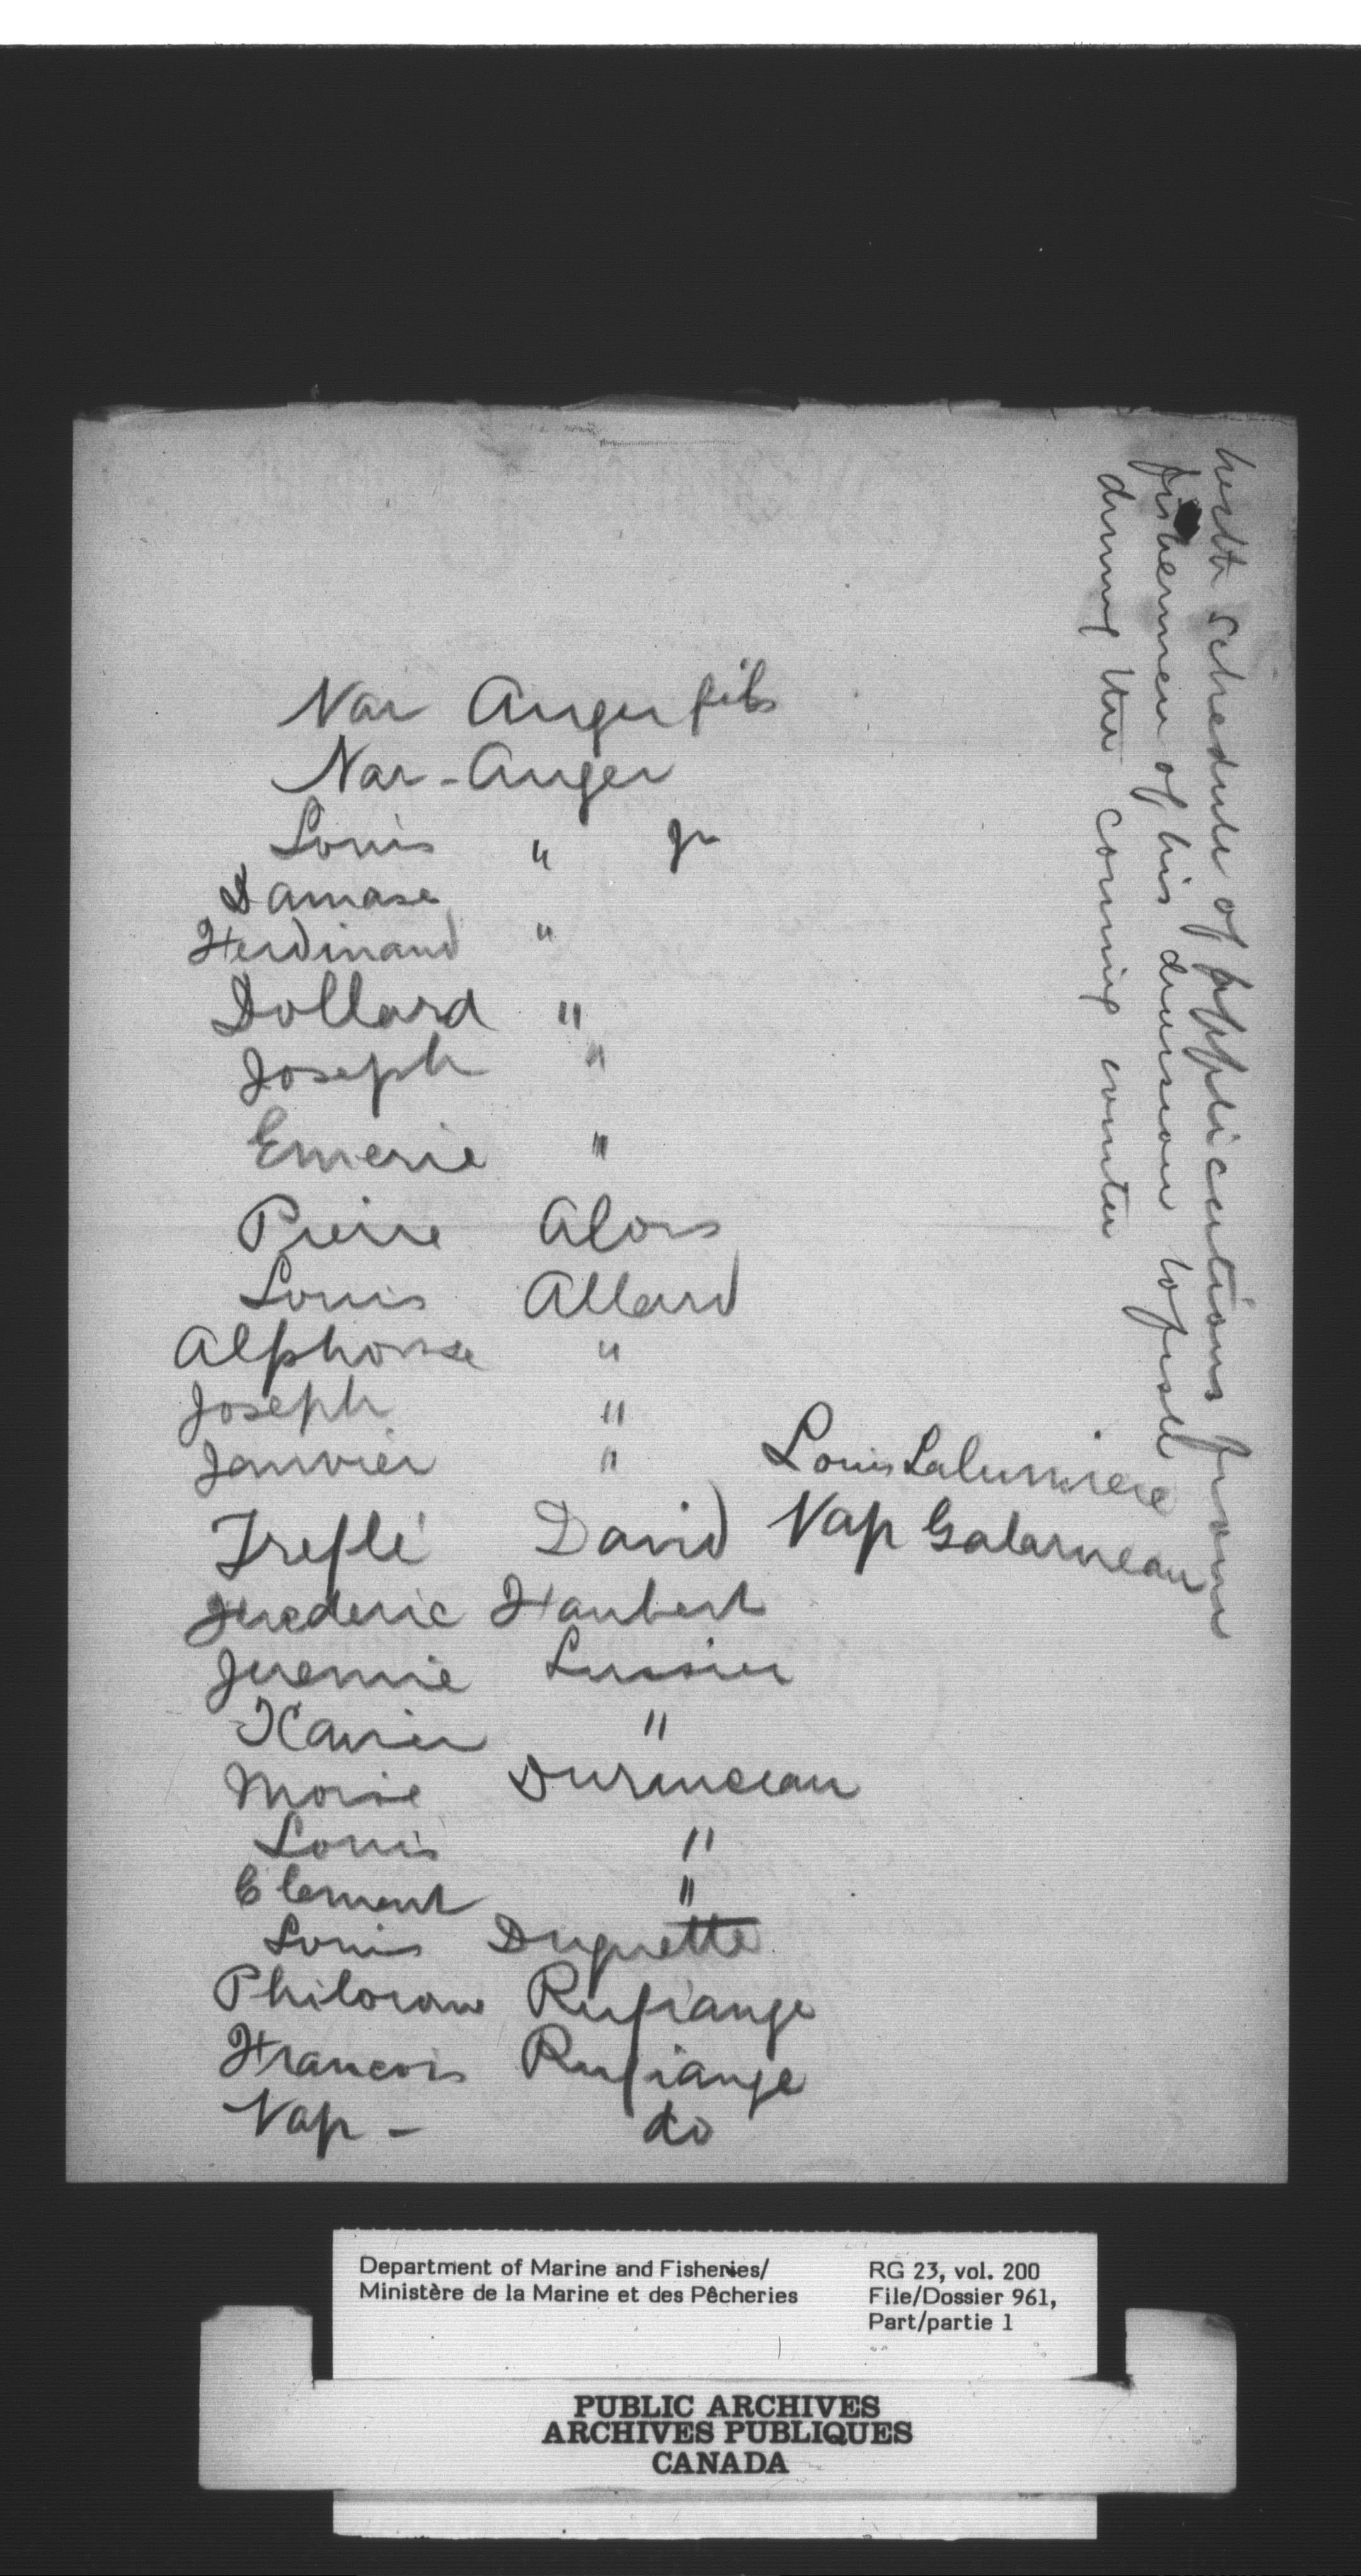 with schedule of applications from
fishermen of his division to fish
during the coming winter
Nar Auger fils
Nar - Auger
Louis " Jr
Damase
Ferdinand "
Dollard "
Joseph "
Emerie "
Pierre Alois
Louis Allard
Alphonse "
Joseph "
Janvier "
Louis Lalumiere
Treflé David
Nap Galarneau
Frederic Haubert
Jeremie Lussier
Xavier "
Moise
Louis "
Clement "
Louis Duquette
Philorom Rufiange
Francois Rufiange
Nap - do
Department of Marine and Fisheries/
Ministère de la Marine et des Pêcheries
RG 23, vol. 200
File/Dossier 961,
Part/partie 1
PUBLIC ARCHIVES
ARCHIVES PUBLIQUES
CANADA